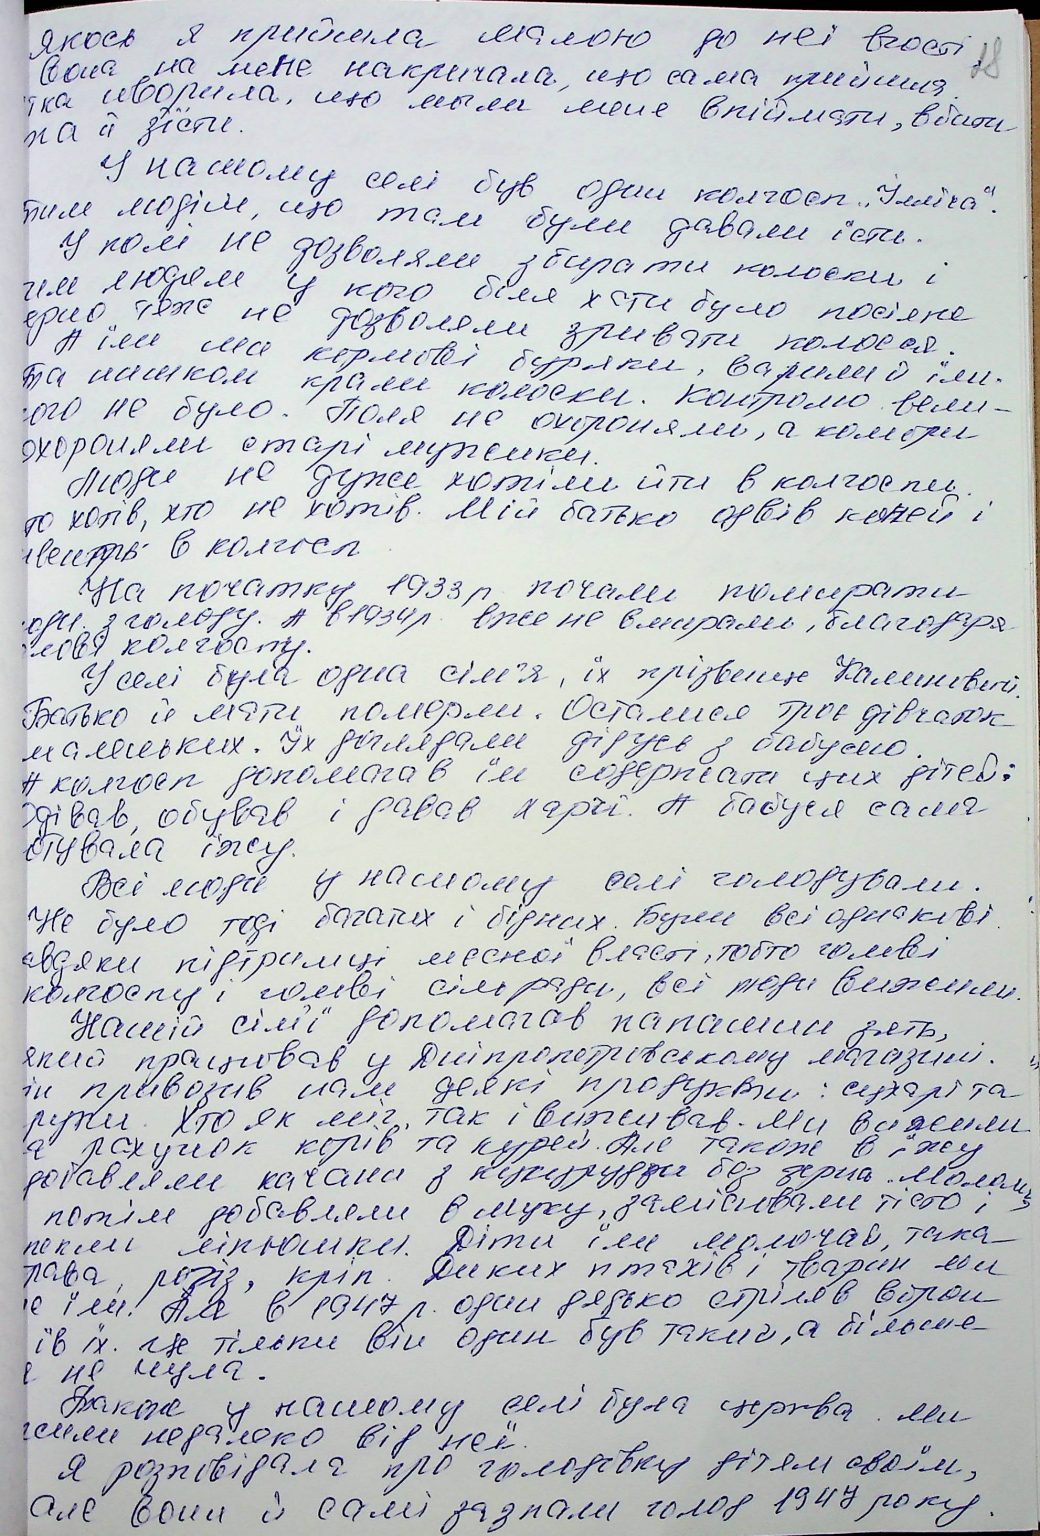 якось я прийшла малою до неї вгості,
18
вона на мене накричала, що сама прийшла.
тка говорила, що могли мене впіймати, вбити
та й з'їсти.
У нашому селі був один колгосп „Ілліча".
тим людім, що там були давали їсти.
У полі не дозволяли збирати колоски і
тим людям у кого біля хати було посіяне
ерно теж не дозволяли зривати колосся.
А їли ми кормові буряки, варили й їли.
Та нишком крали колоски. Контролю вели-
ого не було. Поля не охороняли, а комори
охороняли старі мужики.
Люди не дуже хотіли йти в колгоспи.
то хотів, хто не хотів. Мій батько одвів коней і
в колгосп
На початку 1933 р. почали помирати
юди з голоду. А в 1934 р. вже не вмирали, благодаря
олові колгоспу.
У селі була одна сім'я, їх прізвище
Батько й мати померли. Осталися троє дівчаток
маленьких. Їх доглядали дідусь з бабусею.
А колгосп допомагав їм содержати цих дітей:
Одівав, обував і давав харчі. А бабуся сама
отувала їжу.
Всі люди у нашому селі голодували.
Не було тоді багатих і бідних. Були всі однакові.
авдяки підтримці месної власті, тобто голові
колгоспу і голові сільради, всі люди вижили.
Нашій сім'ї допомагав папашин зять,
який працював у Дніпропетровському магазині.
ін привозив нам деякі продукти: сухарі та
Хто як міг, так і виживав. Ми вижили
а рахунок корів та курей. Але також в їжу
добавляли качани з кукурудзи без зерна. Мололи,
потім добавляли в муку, замішували тісто і
пекли Діти їли молочай, така
рава, рогіз, кріп. Диких птахів і тварин ми
е їли. Але в 1947 р. один дядько стріляв ворон
їв їх. Це тільки він один був такий, а більше
я не чула.
Також у нашому селі була церква. Ми
жили недалеко від неї.
Я розповідала про голодівку дітям своїм,
але вони й самі зазнали голод 1947 року.